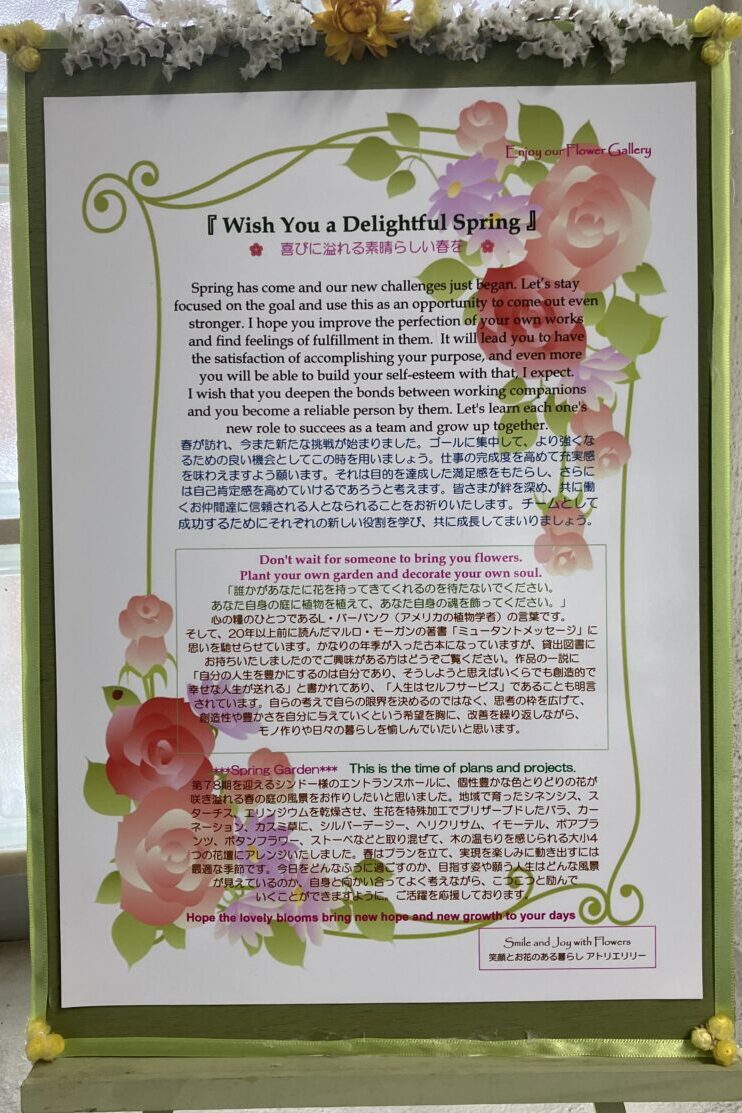 Enjoy our Flower Gallery
『 Wish You a Delightful Spring 』
喜びに溢れる素晴らしい春を
Spring has come and our new challenges just began. Let's stay
focused on the goal and use this as an opportunity to come out even
stronger. I hope you improve the perfection of your own works
and find feelings of fulfillment in them. It will lead you to have
the satisfaction of accomplishing your purpose, and even more
you will be able to build your self-esteem with that, I expect.
I wish that you deepen the bonds between working companions
and you become a reliable person by them. Let's learn each one's
new role to succees as a team and grow up together.
春が訪れ、今また新たな挑戦が始まりました。ゴールに集中して、より強くな
るための良い機会としてこの時を用いましょう。仕事の完成度を高めて充実感
を味わえますよう願います。それは目的を達成した満足感をもたらし、さらに
は自己肯定感を高めていけるであろうと考えます。皆さまが絆を深め、共に働
くお仲間達に信頼される人となられることをお祈りいたします。チームとして
成功するためにそれぞれの新しい役割を学び、共に成長してまいりましょう。
Don't wait for someone to bring you flowers.
Plant your own garden and decorate your own soul.
「誰かがあなたに花を持ってきてくれるのを待たないでください。
あなた自身の庭に植物を植えて、あなた自身の魂を飾ってください。」
心の糧のひとつであるL・バーバンク（アメリカの植物学者）の言葉です。
そして、20年以上前に読んだマルロ・モーガンの著書「ミュータントメッセージ」に
思いを馳せらせています。かなりの年季が入った古本になっていますが、貸出図書に
お持ちいたしましたのでご興味がある方はどうぞご覧ください。作品の一説に
「自分の人生を豊かにするのは自分であり、そうしようと思えばいくらでも創造的で
幸せな人生が送れる」と書かれてあり、「人生はセルフサービス」であることも明言
されています。自らの考えで自らの限界を決めるのではなく、思考の枠を広げて、
創造性や豊かさを自分に与えていくという希望を胸に、改善を繰り返しながら、
モノ作りや日々の暮らしを愉しんでいたいと思います。
***Spring Garden*** This is the time of plans and projects.
第78期を迎えるシンドー様のエントランスホールに、個性豊かな色とりどりの花が
咲き溢れる春の庭の風景をお作りしたいと思いました。地域で育ったシネンシス、ス
ターチス、エリンジウムを乾燥させ、生花を特殊加工でプリザーブドしたバラ、カー
ネーション、カスミ草に、シルバーデージー、ヘリクリサム、イモーテル、ボアプラ
ンツ、ボタンフラワー、ストーベなどと取り混ぜて、木の温もりを感じられる大小4
つの花壇にアレンジいたしました。春はプランを立て、実現を楽しみに動き出すには
最適な季節です。今日をどんなふうに過ごすのか、目指す姿や願う人生はどんな風景
が見えているのか、自身と向かい合ってよく考えながら、こつこつと励んで
いくことができますように。ご活躍を応援しております。
Hope the lovely blooms bring new hope and new growth to your days
Smile and Joy with Flowers
笑顔とお花のある暮らし アトリエリリー